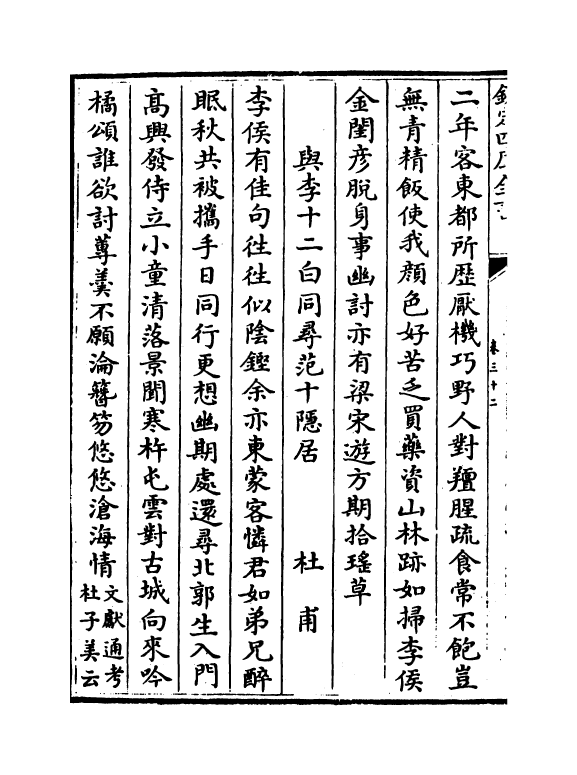 卷三十二
二年客東都所歷厭機巧野人對羶腥疏食常不飽豈
無青精飯使我顔色好苦乏買藥資山林跡如掃李侯
金閨彦脫身事幽討亦有梁宋遊方期拾瑤草
與李十二白同尋范十隠居 杜甫
李侯有佳句徃徃似陰鏗余亦東蒙客憐君如弟兄醉
眠秋共被攜手日同行更想幽期處還尋北郭生入門
髙興發侍立小童清落景聞寒杵屯雲對古城向來吟
橘頌誰欲討蓴羮不願論簪笏悠悠滄海情文獻通考
杜子美云